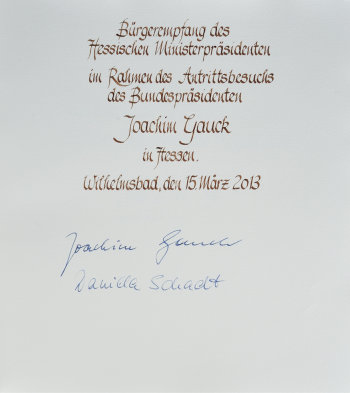 Bürgerempfang des
Hessischen Ministerpräsidenten
im Rahmen des Antrittsbesuchs
des Bundespräsidenten
Joachim Gauck
in Hessen.
Wilhelmsbad, den 15. März 2013
Joachim Gauck
Daniela Schadt